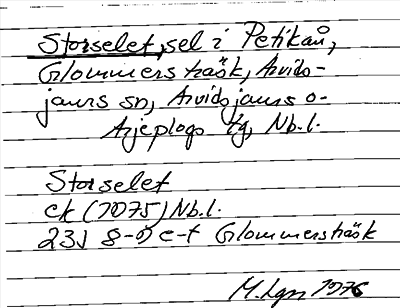 Storselet, sel i Petikån,
Glommersträsk, Arvids-
jaurs sn, Arvidsjaurs o.
Arjeplogs tg, Nb.l.
Storselet
ek (1075) Nb.l.
23J 8-9 e-f Glommersträsk
M.Lgn 1976